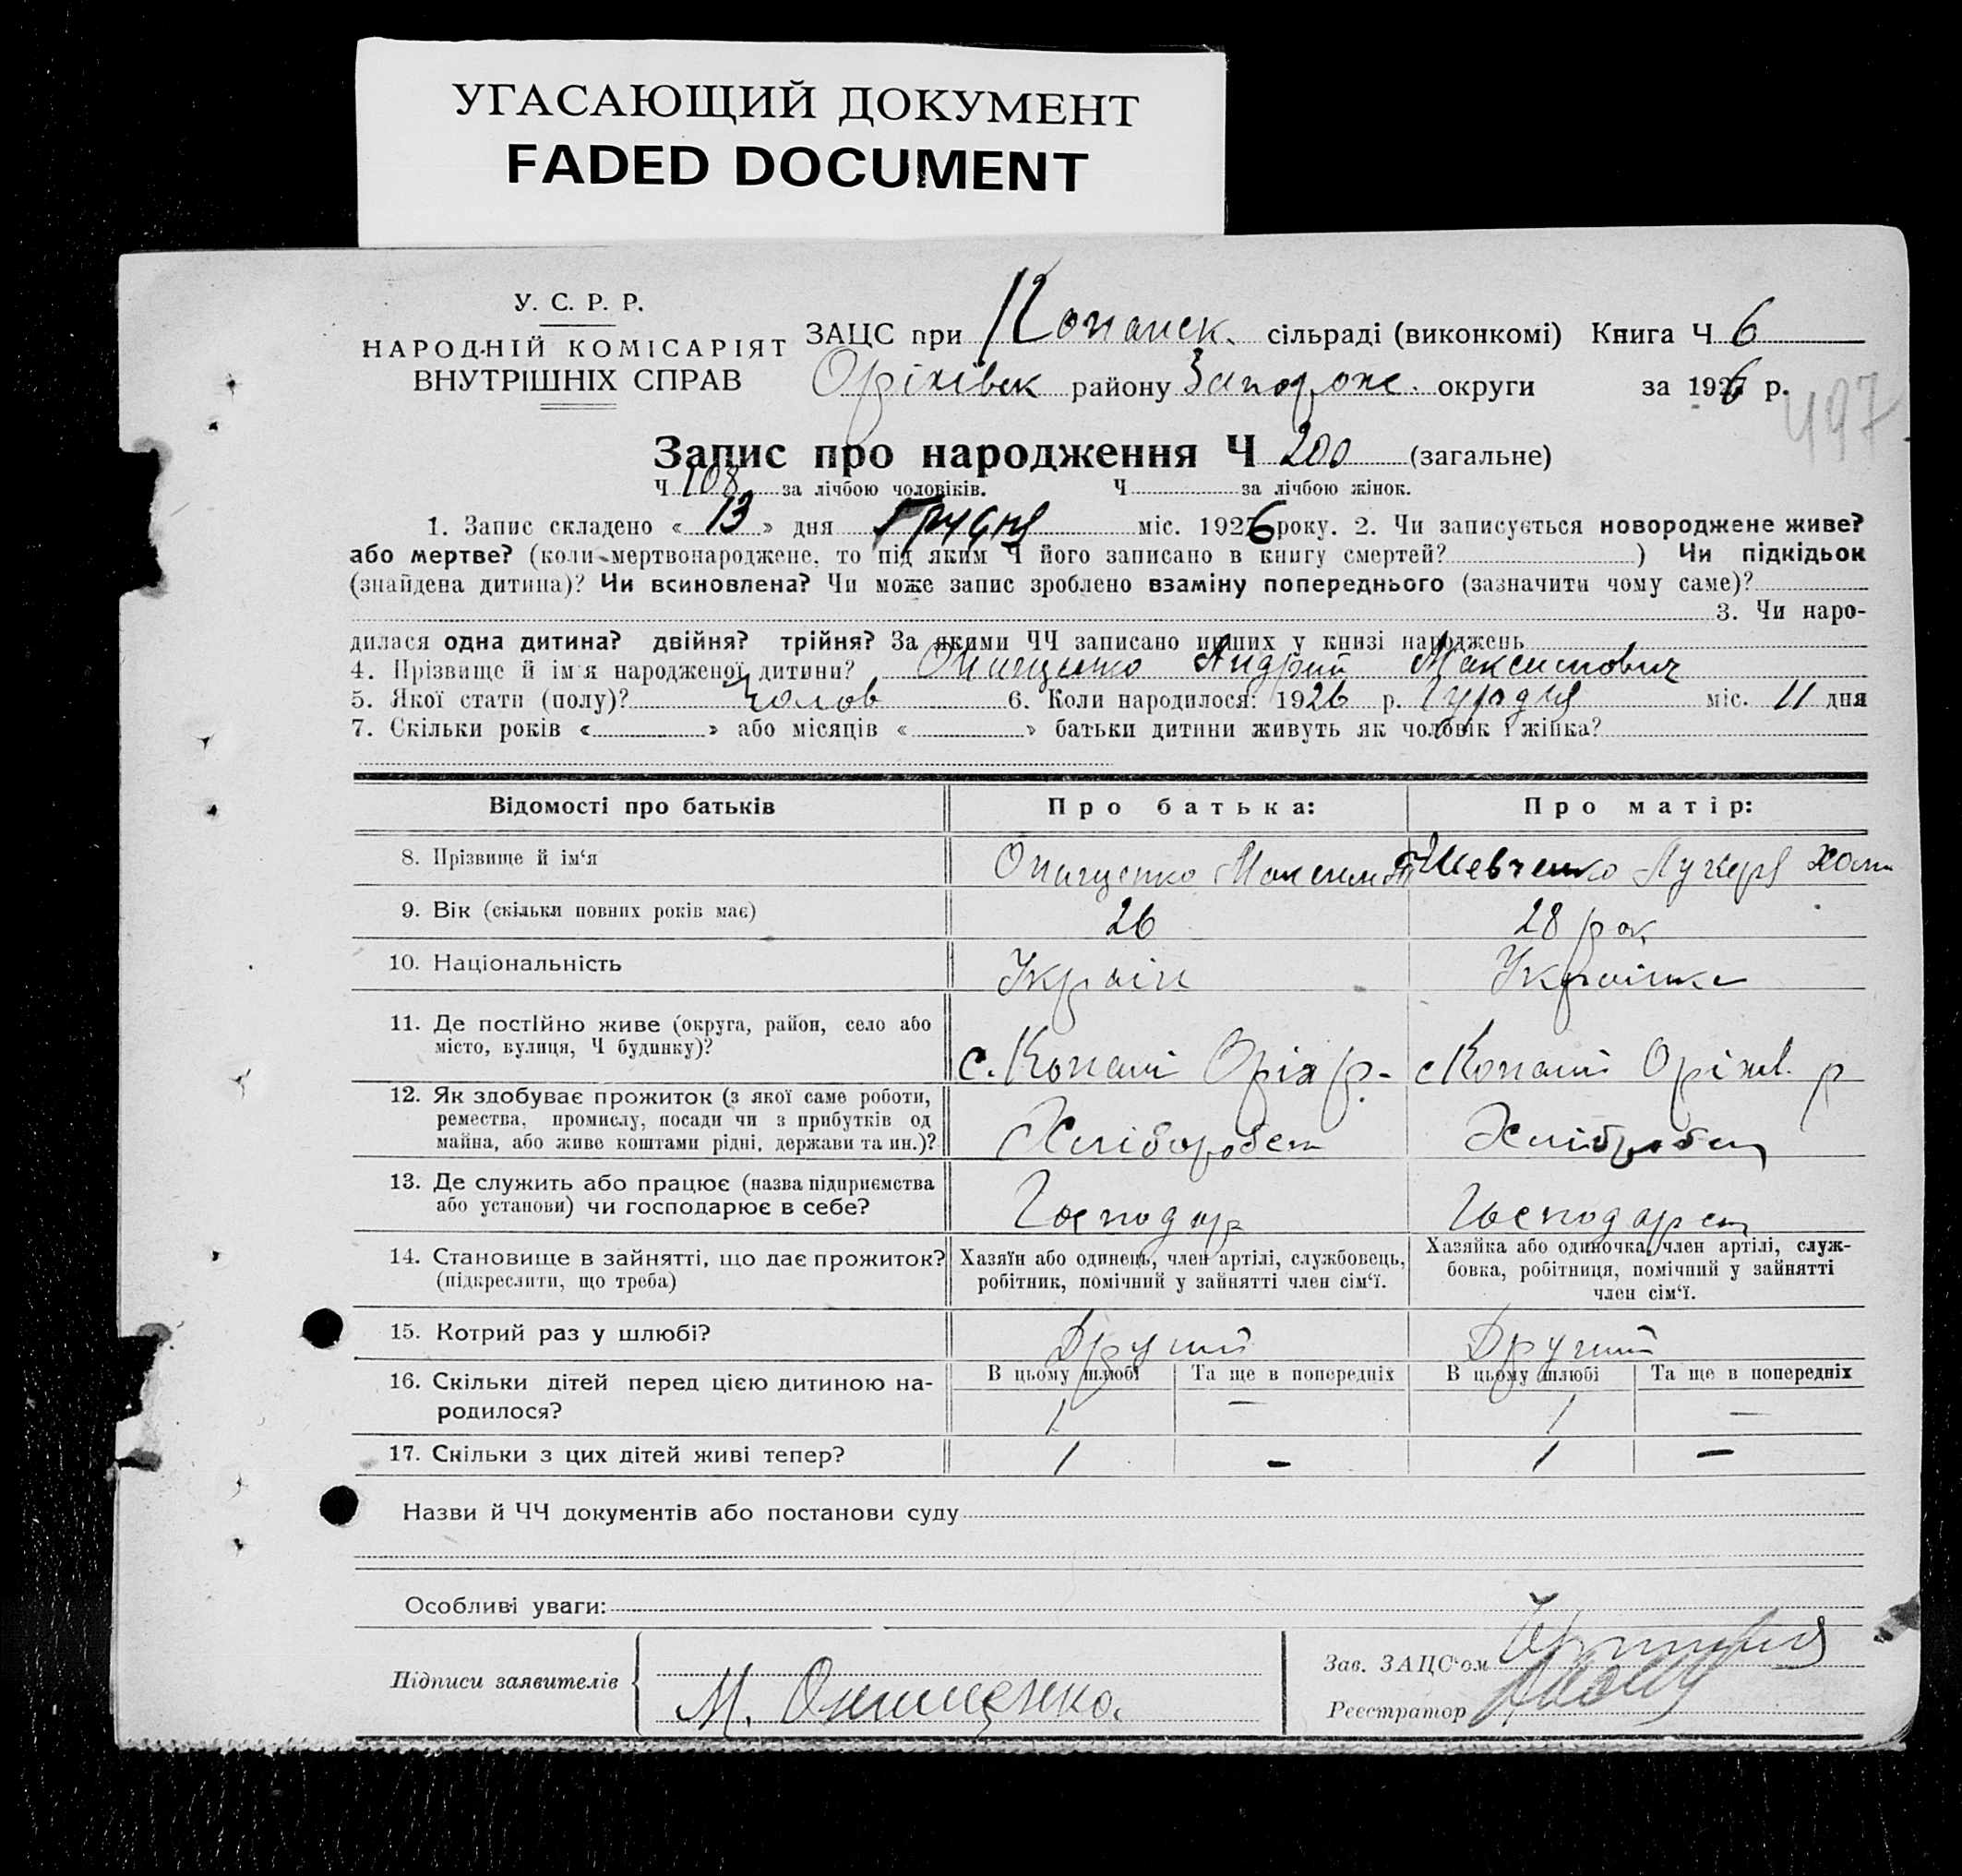 УГАСАЮЩИЙ ДОКУМЕНТ
FADED DOCUMENT
У. С. Р. Р.
НАРОДНІЙ КОМІСАРІЯТ
ВНУТРІШНІХ СПРАВ
ЗАЦС при Копанск. сільраді (виконкомі) Книга Ч 6
Оріхівск району Запорож. округи за 1926 р.
497
Запис про народження Ч 200 (загальне)
Ч 108 за лічбою чоловіків. Ч за лічбою жінок.
1. Запис складено « 13 » дня Грудня міс. 1926 року. 2. Чи записується новороджене живе?
або мертве? (коли мертвонароджене, то під яким Ч його записано в книгу смертей? ) Чи підкідьок
(знайдена дитина)? Чи всиновлена? Чи може запис зроблено взаміну попереднього (зазначити чому саме)?
3. Чи наро-
дилася одна дитина? двійня? трійня? За якими ЧЧ записано инших у книзі народжень
4. Прізвище й ім'я народженої дитини? Онищенко Андрий Максимович
5. Якої стати (полу)? Чолов 6. Коли народилося: 1926 р. Грудня міс. 11 дня
7. Скільки років « » або місяців « » батьки дитини живуть як чоловік і жінка?
Відомості про батьків Про батька: Про матір:
8. Прізвище й ім‘я Онищенко Максим Шевченко Лукеря
9. Вік (скільки повних років має) 26 28 рок
10. Національність Україн Українка
11. Де постійно живе (округа, район, село або
місто, вулиця, Ч будинку)? с. Копані Оріх р. с Копані Оріхів. р
12. Як здобуває прожиток (з якої саме роботи,
ремества, промислу, посади чи з прибутків од
майна, або живе коштами рідні, держави та ин.)? Хлібороб
13. Де служить або працює (назва підприємства
або установи) чи господарює в себе? Господар
14. Становище в зайнятті, що дає прожиток?
(підкреслити, що треба)
Хазяїн або одинець, член артілі, службовець,
робітник, помічний у зайнятті член сім‘ї.
Хазяйка або одиночка, член артілі, служ-
бовка, робітниця, помічний у зайнятті
член сім‘ї.
15. Котрий раз у шлюбі? Другий Другий
16. Скільки дітей перед цією дитиною на-
родилося?
В цьому шлюбі Та ще в попередніх В цьому шлюбі Та ще в попередніх
1 — 1 —
17. Скільки з цих дітей живі тепер? 1 — 1 —
Назви й ЧЧ документів або постанови суду
Особливі уваги:
Підписи заявителів
М. Онищенко.
Зав. ЗАЦС‘ом
Реєстратор